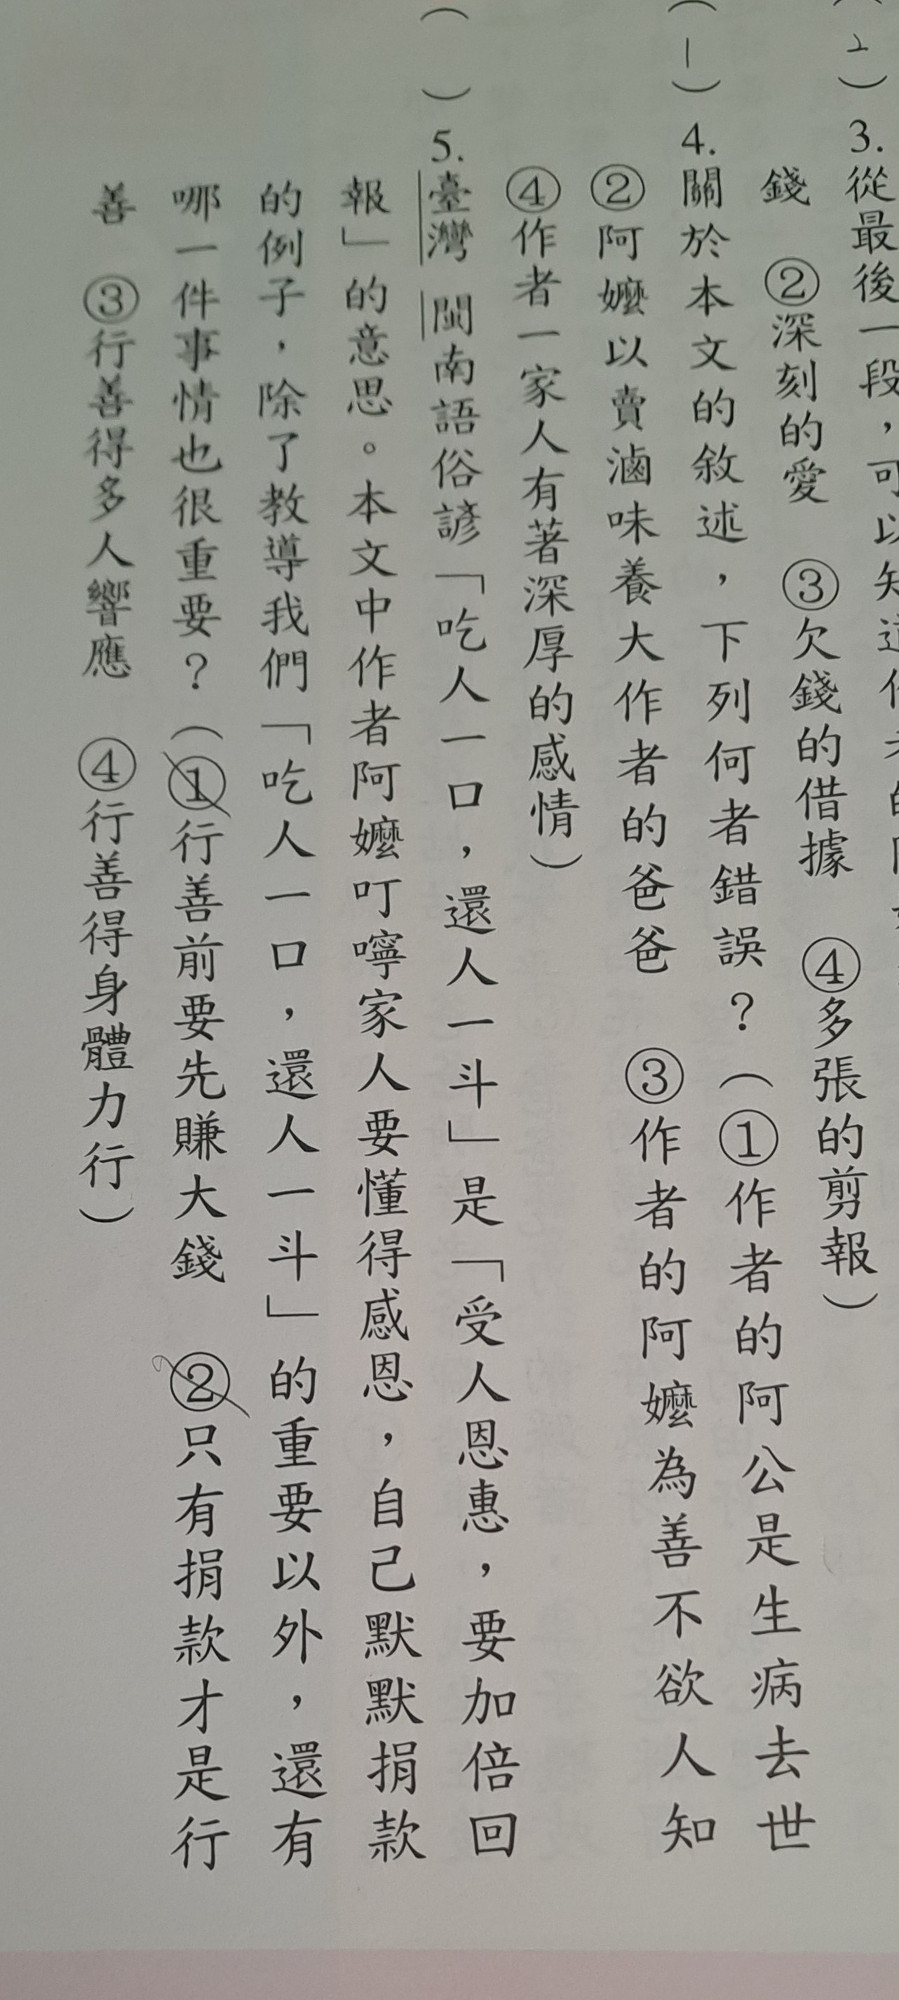 (2) 3. 從最後一段，可以知道作者的阿
錢　②深刻的愛　③欠錢的借據　④多張的剪報）
(1) 4. 關於本文的敘述，下列何者錯誤？（①作者的阿公是生病去世
②阿嬤以賣滷味養大作者的爸爸　③作者的阿嬤為善不欲人知
④作者一家人有著深厚的感情）
( ) 5. 臺灣 閩南語俗諺「吃人一口，還人一斗」是「受人恩惠，要加倍回
報」的意思。本文中作者阿嬤叮嚀家人要懂得感恩，自己默默捐款
的例子，除了教導我們「吃人一口，還人一斗」的重要以外，還有
哪一件事情也很重要？（①行善前要先賺大錢　②只有捐款才是行
善　③行善得多人響應　④行善得身體力行）